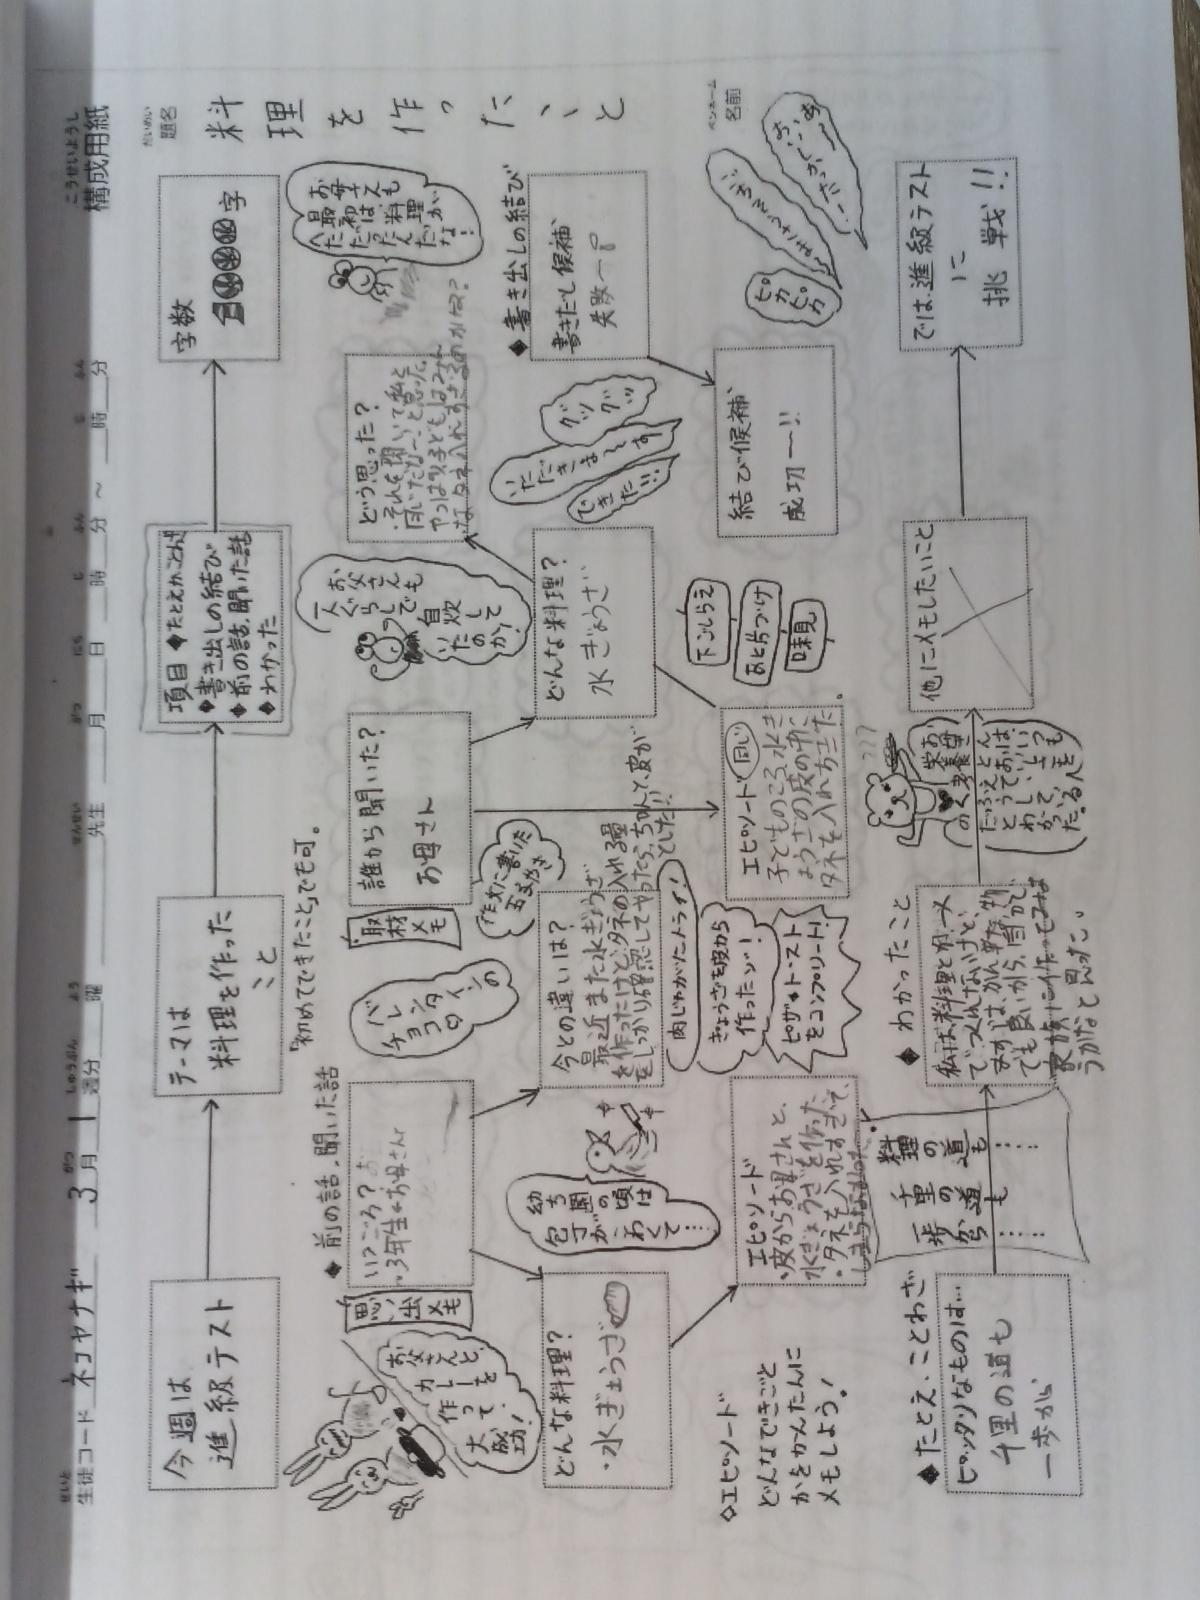 構成用紙
こうせいようし
生徒コード ネコヤナギ 3月 1週分 曜 先生 月 日 時 分 ～ 時 分
題名
だいめい
料理を作ったこと
ペンネーム
名前
今週は
進級テスト
テーマは
料理を作った
こと
「初めてできたこと」でも可。
項目 ◆たとえかことわざ
◆書き出しの結び
◆前の話、聞いた話
◆わかった
字数
字
お父さんと、
カレーを
作って
大成功!
思い出メモ
◆前の話、聞いた話
いつごろ?
・3年生 お母さん
バレンタインの
チョコ
取材メモ
誰から聞いた?
お母さん
お父さんも
一人ぐらしでも
自炊して
いたのか!
どう思った?
・それを聞いて私と
同じだなーと思った。
やっぱり子どもはみん
なタネ入れすぎるのかな?
お母さんも
最初は、料理が
へただったんだ
な!
どんな料理?
・水ぎょうざ
幼ち園の頃は
包丁がこわくて……
今との違いは?
最近また水ぎょうざ
を作ったけど、タネの入れる量
をしっかり確認してやったら、ちゃんと皮が
とじた!!
作文に書いた
どんな料理?
水ぎょうざ
いただきまーす
できた!!
グツグツ
◆書き出しの結び
書きだし候補
失敗～
結び候補
成功～!!
ピカピカ
◇エピソード
どんなできごと
かをかんたんに
メモしよう!
エピソード
・皮からお母さんと、
水ぎょうざを作った
・タネを入れすぎて、
しまらなかった。
肉じゃがにトライ!
ぎょうざを皮から
作ったゾ!
ピザトースト
をコンプリート!
エピソード 同じ
子どものころ、水ぎ
ょうざの皮の中に
タネを入れすぎた。
下ごしらえ
あと片づけ
味見
◆たとえ、ことわざ
ピッタリなものは…
千里の道も
一歩から
料理の道も……
千里の道も
一歩から……
◆わかったこと
私は、料理とか、一人
でつくれないけど、
まずは、かん単な物
でも良いから、自分で
家族に作ってみよ
うかなと思った。
???
お母さんは、いつも
栄養を
他にメモしたいこと
では、進級テスト
に
挑戦!!